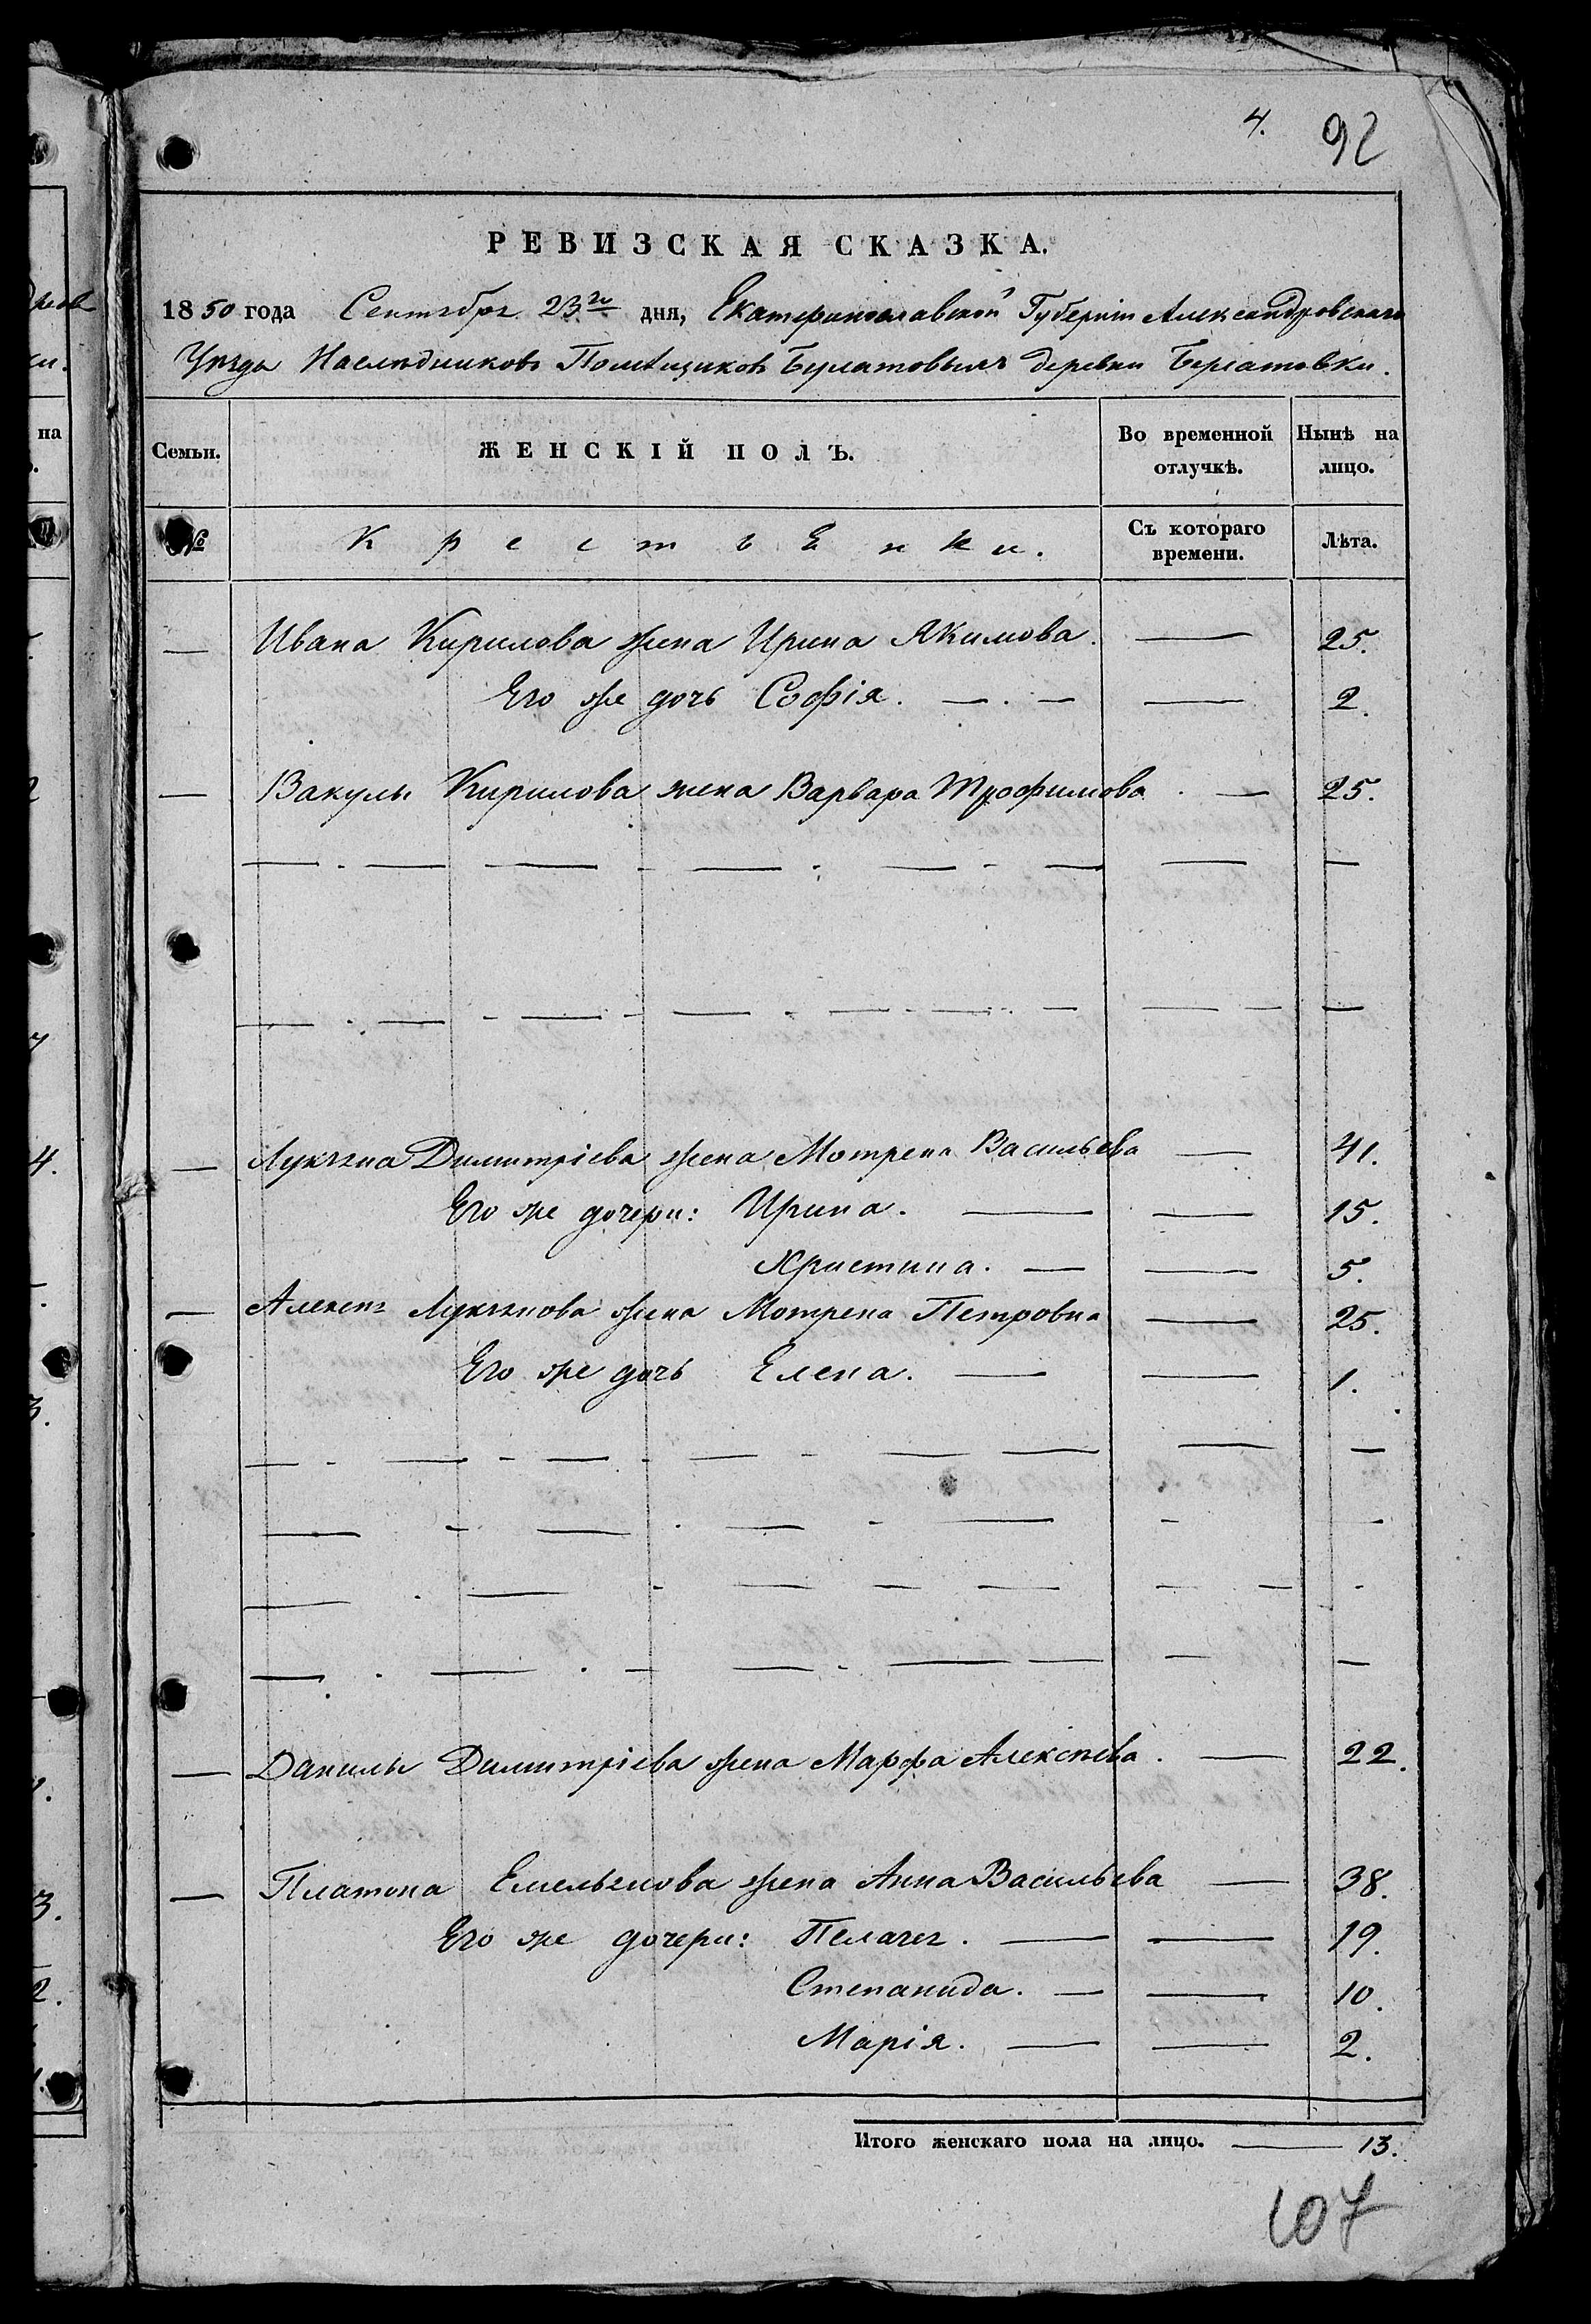 4. 92
РЕВИЗСКАЯ СКАЗКА.
1850 года Сентября 23го дня, Екатеринославской Губерніи Александровскаго
Уезда Наследниковъ Помѣщиковъ Булатовыхъ деревни
Семьи. ЖЕНСКІЙ ПОЛЪ. Во временной отлучкѣ. Нынѣ на лицо.
№ Крестьенки. Съ котораго времени. Лѣта.
— Ивана Кирилова жена Ирина Якимова. — 25.
Его же дочь Софія. — . — — 2.
— Вакулы Кирилова жена Варвара Трофимова . — 25.
— Лукъяна Димитріева жена Мотрена Васильева — 41.
Его же дочери: Ирина. — — 15.
Христина. — — 5.
— Алексея Лукьянова жена Мотрена Петровна — 25.
Его же дочь Елена. — — 1.
— Данилы Димитріева жена Марфа Алексѣева . — 22.
— Платона Емельянова жена Анна Васильева — 38.
Его же дочери: Пелагея . — — 19.
Степанида. — — 10.
Марія. — — 2.
Итого женскаго пола на лицо. — 13.
107